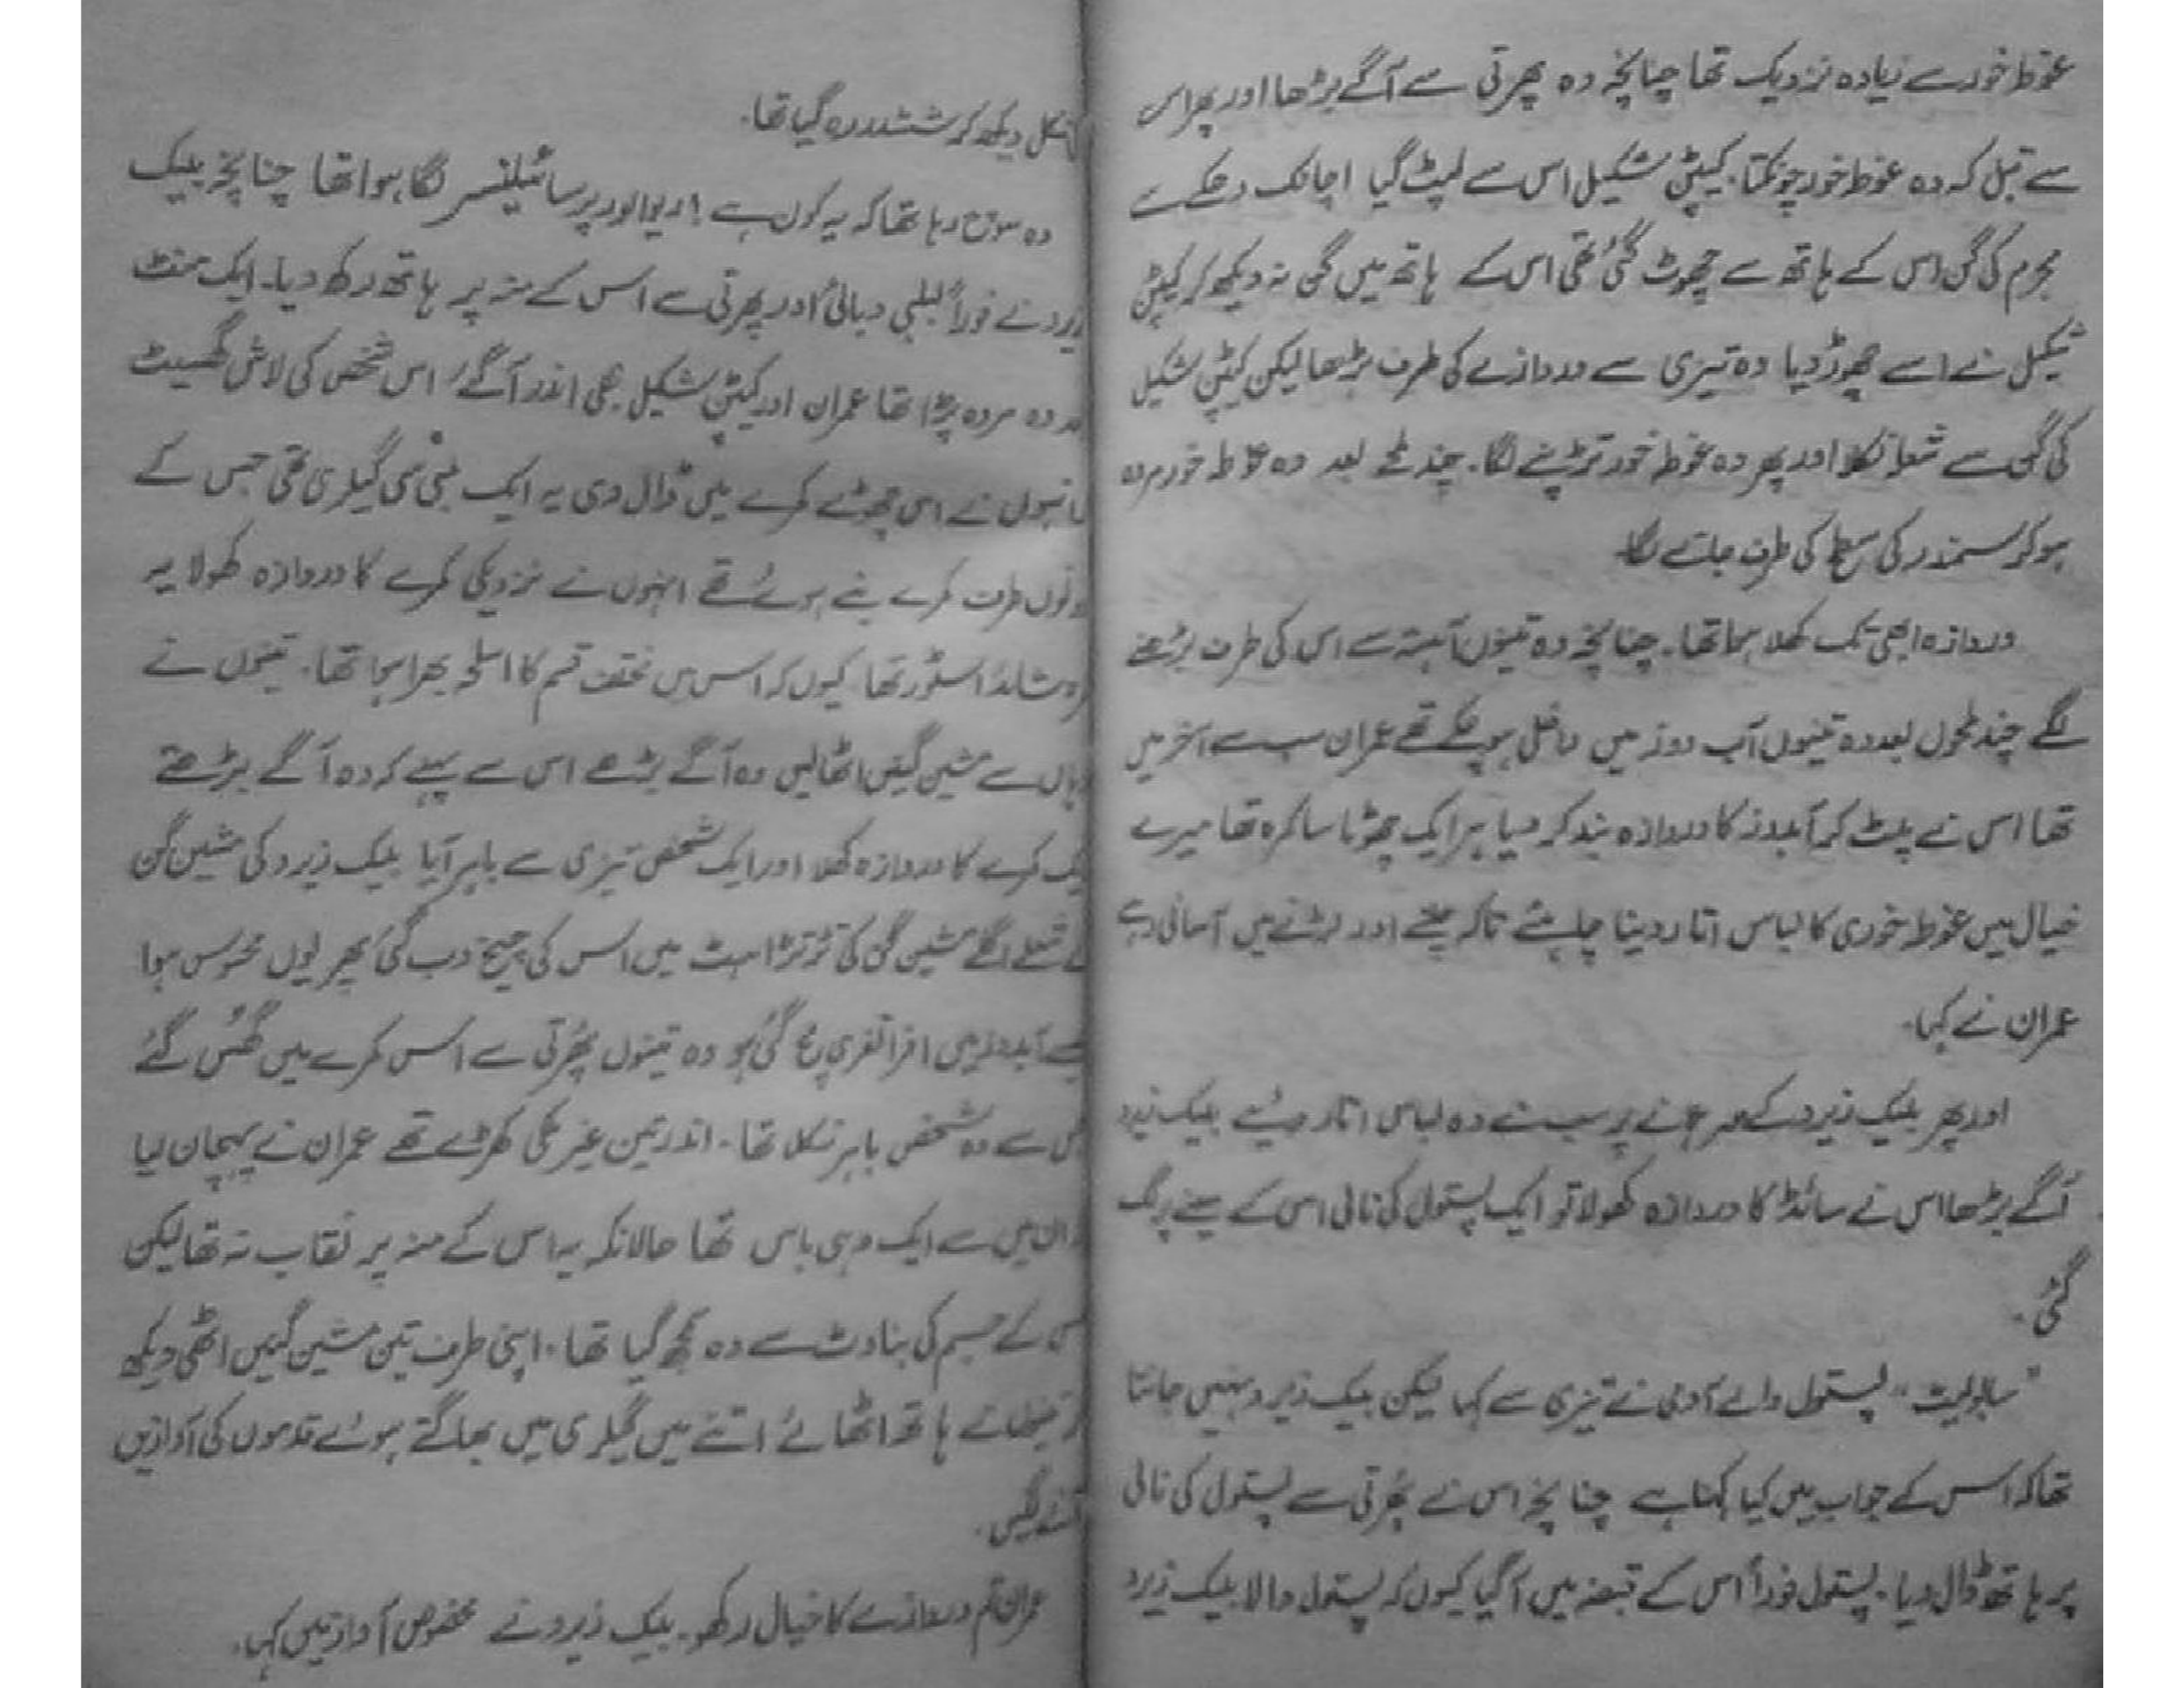 غوطہ خور سے زیادہ نزدیک تھا چنانچہ وہ پھرتی سے آگے بڑھا اور پھر اس
سے قبل کہ وہ غوطہ خور چونکتا۔ کیپٹن شکیل اس سے لپٹ گیا اچانک دھکے سے
مجرم کی گن اس کے ہاتھ سے چھوٹ گئی تھی اس کے ہاتھ میں گن نہ دیکھ کر کیپٹن
شکیل نے اسے چھوڑ دیا وہ تیزی سے دروازے کی طرف بڑھا لیکن کیپٹن شکیل
کی گن سے شعلہ نکلا اور پھر وہ غوطہ خور تڑپنے لگا۔ چند لمحے بعد وہ غوطہ خور مردہ
ہو کر سمندر کی سطح کی طرف جانے لگا۔
دروازہ ابھی تک کھلا ہوا تھا۔ چنانچہ وہ تینوں آہستہ سے اس کی طرف بڑھنے
لگے چند لمحوں بعد وہ تینوں آب دوز میں داخل ہو چکے تھے عمران سب سے آخر میں
تھا اس نے پلٹ کر آبدوز کا دروازہ بند کر دیا یہ ایک چھوٹا سا کمرہ تھا میرے
خیال میں غوطہ خوری کا لباس اتار دینا چاہئے تاکہ چلنے اور لڑنے میں آسانی رہے
عمران نے کہا۔
اور پھر بلیک زیرو کے سر ہلانے پر سب نے وہ لباس اتار دیئے بلیک زیرو
آگے بڑھا اس نے سائڈ کا دروازہ کھولا تو ایک پستول کی نالی اس کے سینے پر لگ
گئی۔
"سابولیٹ" پستول والے آدمی نے تیزی سے کہا لیکن بلیک زیرو نہیں جانتا
تھا کہ اس کے جواب میں کیا کہنا ہے چنانچہ اس نے پھرتی سے پستول کی نالی
پر ہاتھ ڈال دیا۔ پستول فوراً اس کے قبضہ میں آ گیا کیوں کہ پستول والا بلیک زیرو
شکل دیکھ کر ششدر رہ گیا تھا۔
وہ سوچ رہا تھا کہ یہ کون ہے! ریوالور پر سائیلنسر لگا ہوا تھا چنانچہ بلیک
زیرو نے فوراً لبلبی دبائی اور پھرتی سے اس کے منہ پر ہاتھ رکھ دیا۔ ایک منٹ
بعد وہ مردہ پڑا تھا عمران اور کیپٹن شکیل بھی اندر آ گئے اس شخص کی لاش گھسیٹ
انہوں نے اسی چھوٹے کمرے میں ڈال دی یہ ایک لمبی سی گیلری تھی جس کے
دونوں طرف کمرے بنے ہوئے تھے انہوں نے نزدیکی کمرے کا دروازہ کھولا یہ
شائد اسٹور تھا کیوں کہ اس میں مختلف قسم کا اسلحہ بھرا ہوا تھا۔ تینوں نے
وہاں سے مشین گنیں اٹھا لیں وہ آگے بڑھے اس سے پہلے کہ وہ آگے بڑھتے
ایک کمرے کا دروازہ کھلا اور ایک شخص تیزی سے باہر آیا بلیک زیرو کی مشین گن
نے شعلے اگلے مشین گن کی تڑتڑاہٹ میں اس کی چیخ دب گئی پھر یوں محسوس ہوا
جیسے آبدوز میں افراتفری مچ گئی ہو وہ تینوں پھرتی سے اس کمرے میں گھس گئے
جس سے وہ شخص باہر نکلا تھا۔ اندر تین غیر ملکی کھڑے تھے عمران نے پہچان لیا
ان میں سے ایک وہی باس تھا حالانکہ یہ اس کے منہ پر نقاب نہ تھا لیکن
اس کے جسم کی بناوٹ سے وہ سمجھ گیا تھا۔ اپنی طرف تین مشین گنیں اٹھی دیکھ
کر تینوں نے ہاتھ اٹھائے اتنے میں گیلری میں بھاگتے ہوئے قدموں کی آوازیں
آنے لگیں۔
عمران تم دروازے کا خیال رکھو۔ بلیک زیرو نے مخصوص آواز میں کہا۔